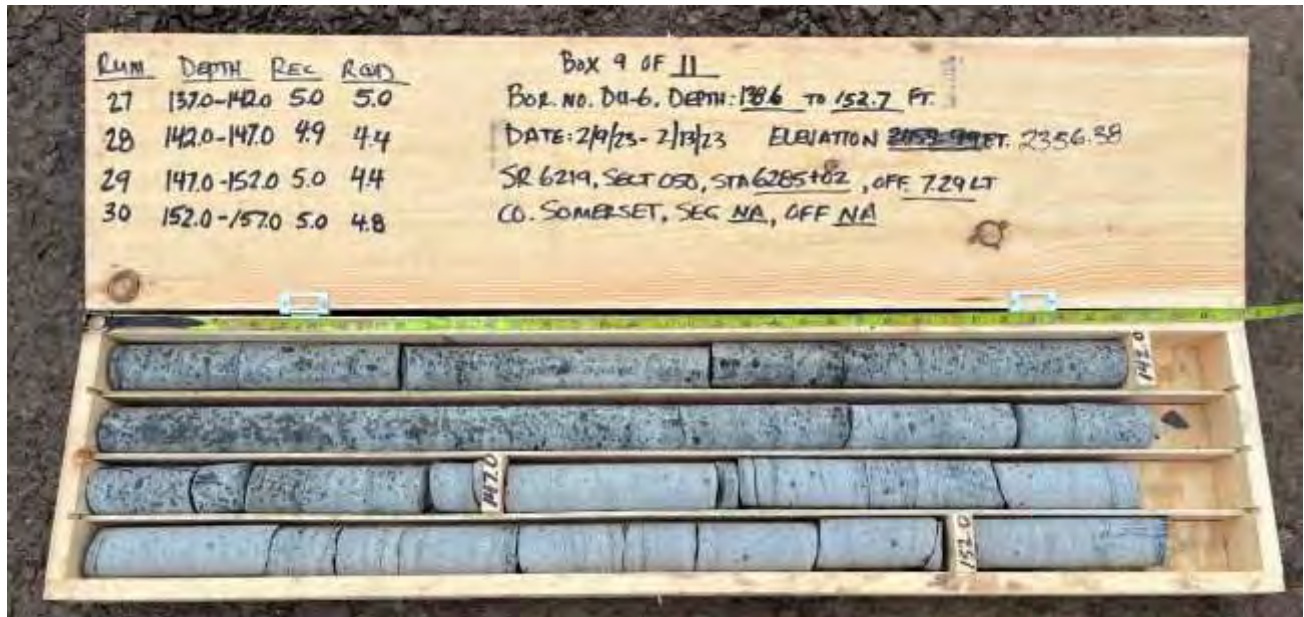 RUN DEPTH REC RQD
27 137.0-142.0 5.0 5.0
28 142.0-147.0 4.9 4.4
29 147.0-152.0 5.0 4.4
30 152.0-157.0 5.0 4.8
BOX 9 OF 11
BOR. NO. DU-6, DEPTH: 138.6 TO 152.7 FT.
DATE: 2/9/23 - 2/13/23 ELEVATION FT. 2356.38
SR 6219, SECT 050, STA 6285+82, OFF. 7.29 LT
CO. SOMERSET, SEG NA, OFF NA
142.0
147.0
152.0